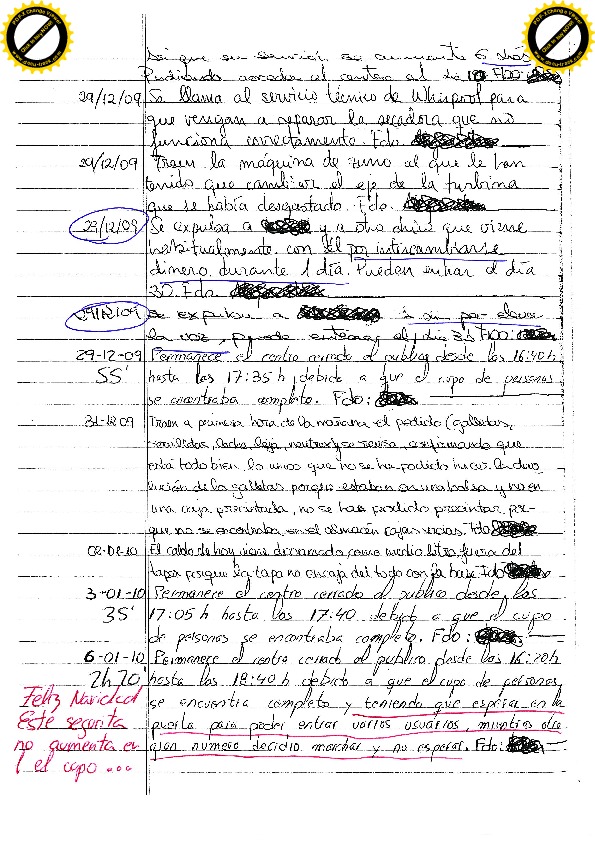 PDF-XChange Viewer
Click to buy NOW!
www.docu-track.com
PDF-XChange Viewer
Click to buy NOW!
www.docu-track.com
en servicio se aumente 6
al centro el día Fdo:
29/12/09 Se llama al servicio técnico de Whirlpool para
que vengan a reparar la secadora que no
funciona correctamente. Fdo.
29/12/09 Traen la máquina de zumo al que le han
tenido que cambiar el eje de la turbina
que se había desgastado. Fdo.
29/12/09 Se expulsa a y a otro chico que viene
habitualmente con él por intercambiarse
dinero, durante 1 día. Pueden entrar el día
30. Fdo.
29/12/09 Se expulsa a por elevar
la voz, puede entrar el día Fdo:
29-12-09 Permanece el centro cerrado al publico desde las 16:40 h
55' hasta las 17:35 h, debido a que el cupo de personas
se encontraba completo. Fdo:
31-12-09 Traen a primera hora de la mañana el pedido (galletas,
leche, lejía, y se revisa, confirmando que
está todo bien, lo único que no se ha podido hacer la devo-
lución de las galletas porque estaban en una bolsa y no en
una caja precintada, no se han podido precintar por-
que no se encontraban en el almacén cajas vacías. Fdo
02-01-10 El caldo de hoy viene derramado como medio litro fuera del
tapa porque la tapa no encaja del todo con la base. Fdo
3-01-10 Permanece el centro cerrado al publico desde las
35' 17:05 h hasta las 17:40 debido a que el cupo
de personas se encontraba completo. Fdo:
6-01-10 Permanece el centro cerrado al publico desde las 16:20 h
2h 20' hasta las 18:40 h debido a que el cupo de personas
se encuentra completo y teniendo que esperar en la
puerta para poder entrar varios usuarios, mientras otro
gran numero decidio marchar y no esperar. Fdo:
Feliz Navidad
Este segurita
no aumenta en
1 el cupo ...